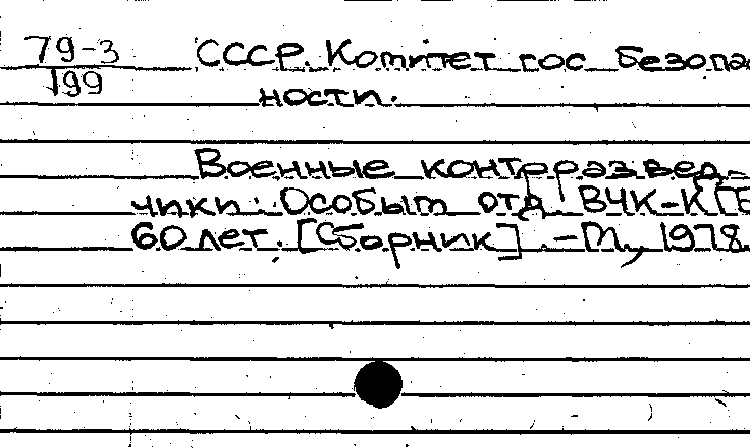 79-3
199
СССР. Комитет гос безопас
ности.
Военные контрразвед-
чики: Особым отд. ВЧК-КГБ
60 лет. [Сборник]. -М., 1978